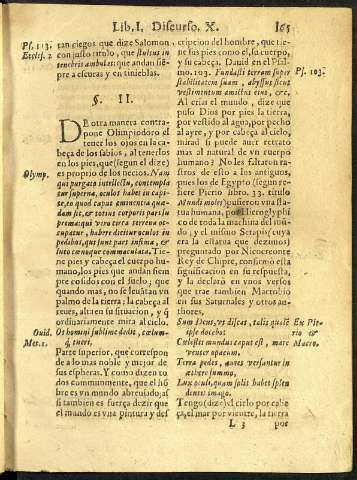 Lib. I. Discurso. X. 165
Ps. 113.
Eccles. 2
tan ciegos que dize Salomon
con justo titulo, que stultus in
tenebris ambulat: que andan siẽ-
pre a escuras y en tinieblas.
§. II.
DE otra manera contra-
pone Olimpiodoro el
tener los ojos en la ca-
beça de los sabios, al tenerlos
en los pies, que (segun el dize)
es proprio de los necios. Nam
Olymp.
qui purgato intellectu, contempla
tur superna, oculos habet in capi-
te, eo quod caput eminentia qua-
dam sit, & totius corporis pars su
prema: qui vero circa terrena oc-
cupatur, habere dicitur oculos in
pedibus, qui sunt pars infima, &
luto cœnoque commaculata, Tie-
ne pies y cabeça el cuerpo hu-
mano, los pies que andan siem
pre cosidos con el suelo, que
quando mas, no se leuãtan vn
palmo de la tierra: la cabeça al
reues, alta en su situacion, y q̃
ordinariamente mira al cielo.
Ouid.
Met. 1.
Os homini sublime dedit, cœlum-
q; tueri.
Parte superior, que correspon-
de a lo mas noble y mejor de
sus espheras. Y como dizen to
dos communmente, que el hõ-
bre es vn mundo abreuiado, as
si tambien es fuerça dezir que
el mundo es vna pintura y des
cripcion del hombre, que tie-
ne sus pies como el, su cuerpo,
y su cabeça. Dauid en el Psal-
mo. 103. Fundasti terram super
Ps. 103.
stabilitatem suam, abyssus sicut
vestimentum amictus eius, &c.
Al criar el mundo, dize que
puso Dios por pies la tierra,
por vestido al agua, por pecho
al ayre, y por cabeça al cielo,
mirad si puede auer retrato
mas al natural de vn cuerpo
humano? No les faltaron ra-
stros de esto a los antiguos,
pues los de Egypto (segun re-
fiere Pierio libro. 33. titulo
Mundi moles) pusieron vna sta-
tua humana, por Hieroglyphi-
co de toda la machina del mũ-
do, y el mismo Serapis (cuya
era la estatua que dezimos)
preguntado por Nicocreonte
Rey de Chipre, confirmo esta
significacion en su respuesta,
y la declaro en vnos versos
que trae tambien Macrobio
en sus Saturnales y otros au-
thores,
Sum Deus, vt discas, talis qualẽ
Ex Pie-
ipse docebo:
rio &
Cœlestis mundus caput est, mare
Macro.
venter opacum.
Terra pedes, aures versantur in
æthere summo,
Lux oculi, quam solis habet splen
dentis imago.
Tengo (dize) el cielo por cabe
ça, el mar por vientre, la tierra
L 3 por